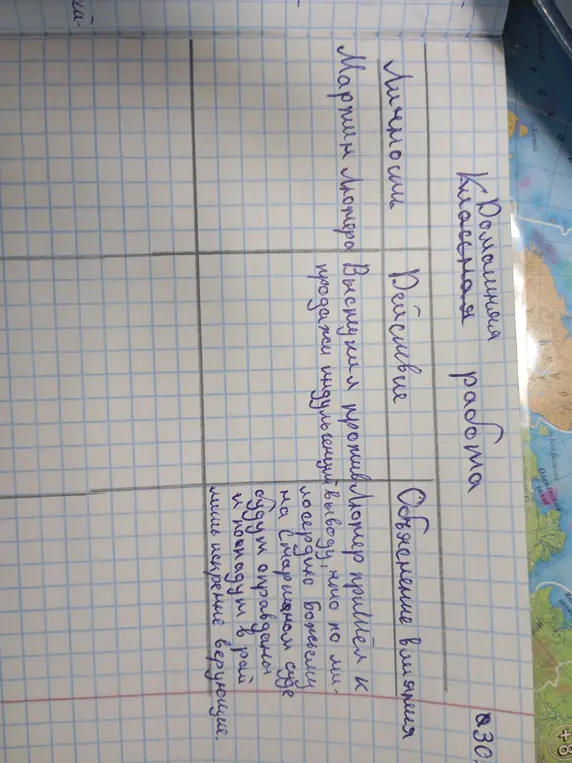 Домашняя
Классная работа
Личности
Действие
Объяснение влияния
Мартин Лютера
Выступил против
продажи индульгенций
Лютер пришёл к
выводу, что по ми-
лосердию Божьему
на Страшном суде
будут оправданы
и попадут в рай
лишь искренне верующие.